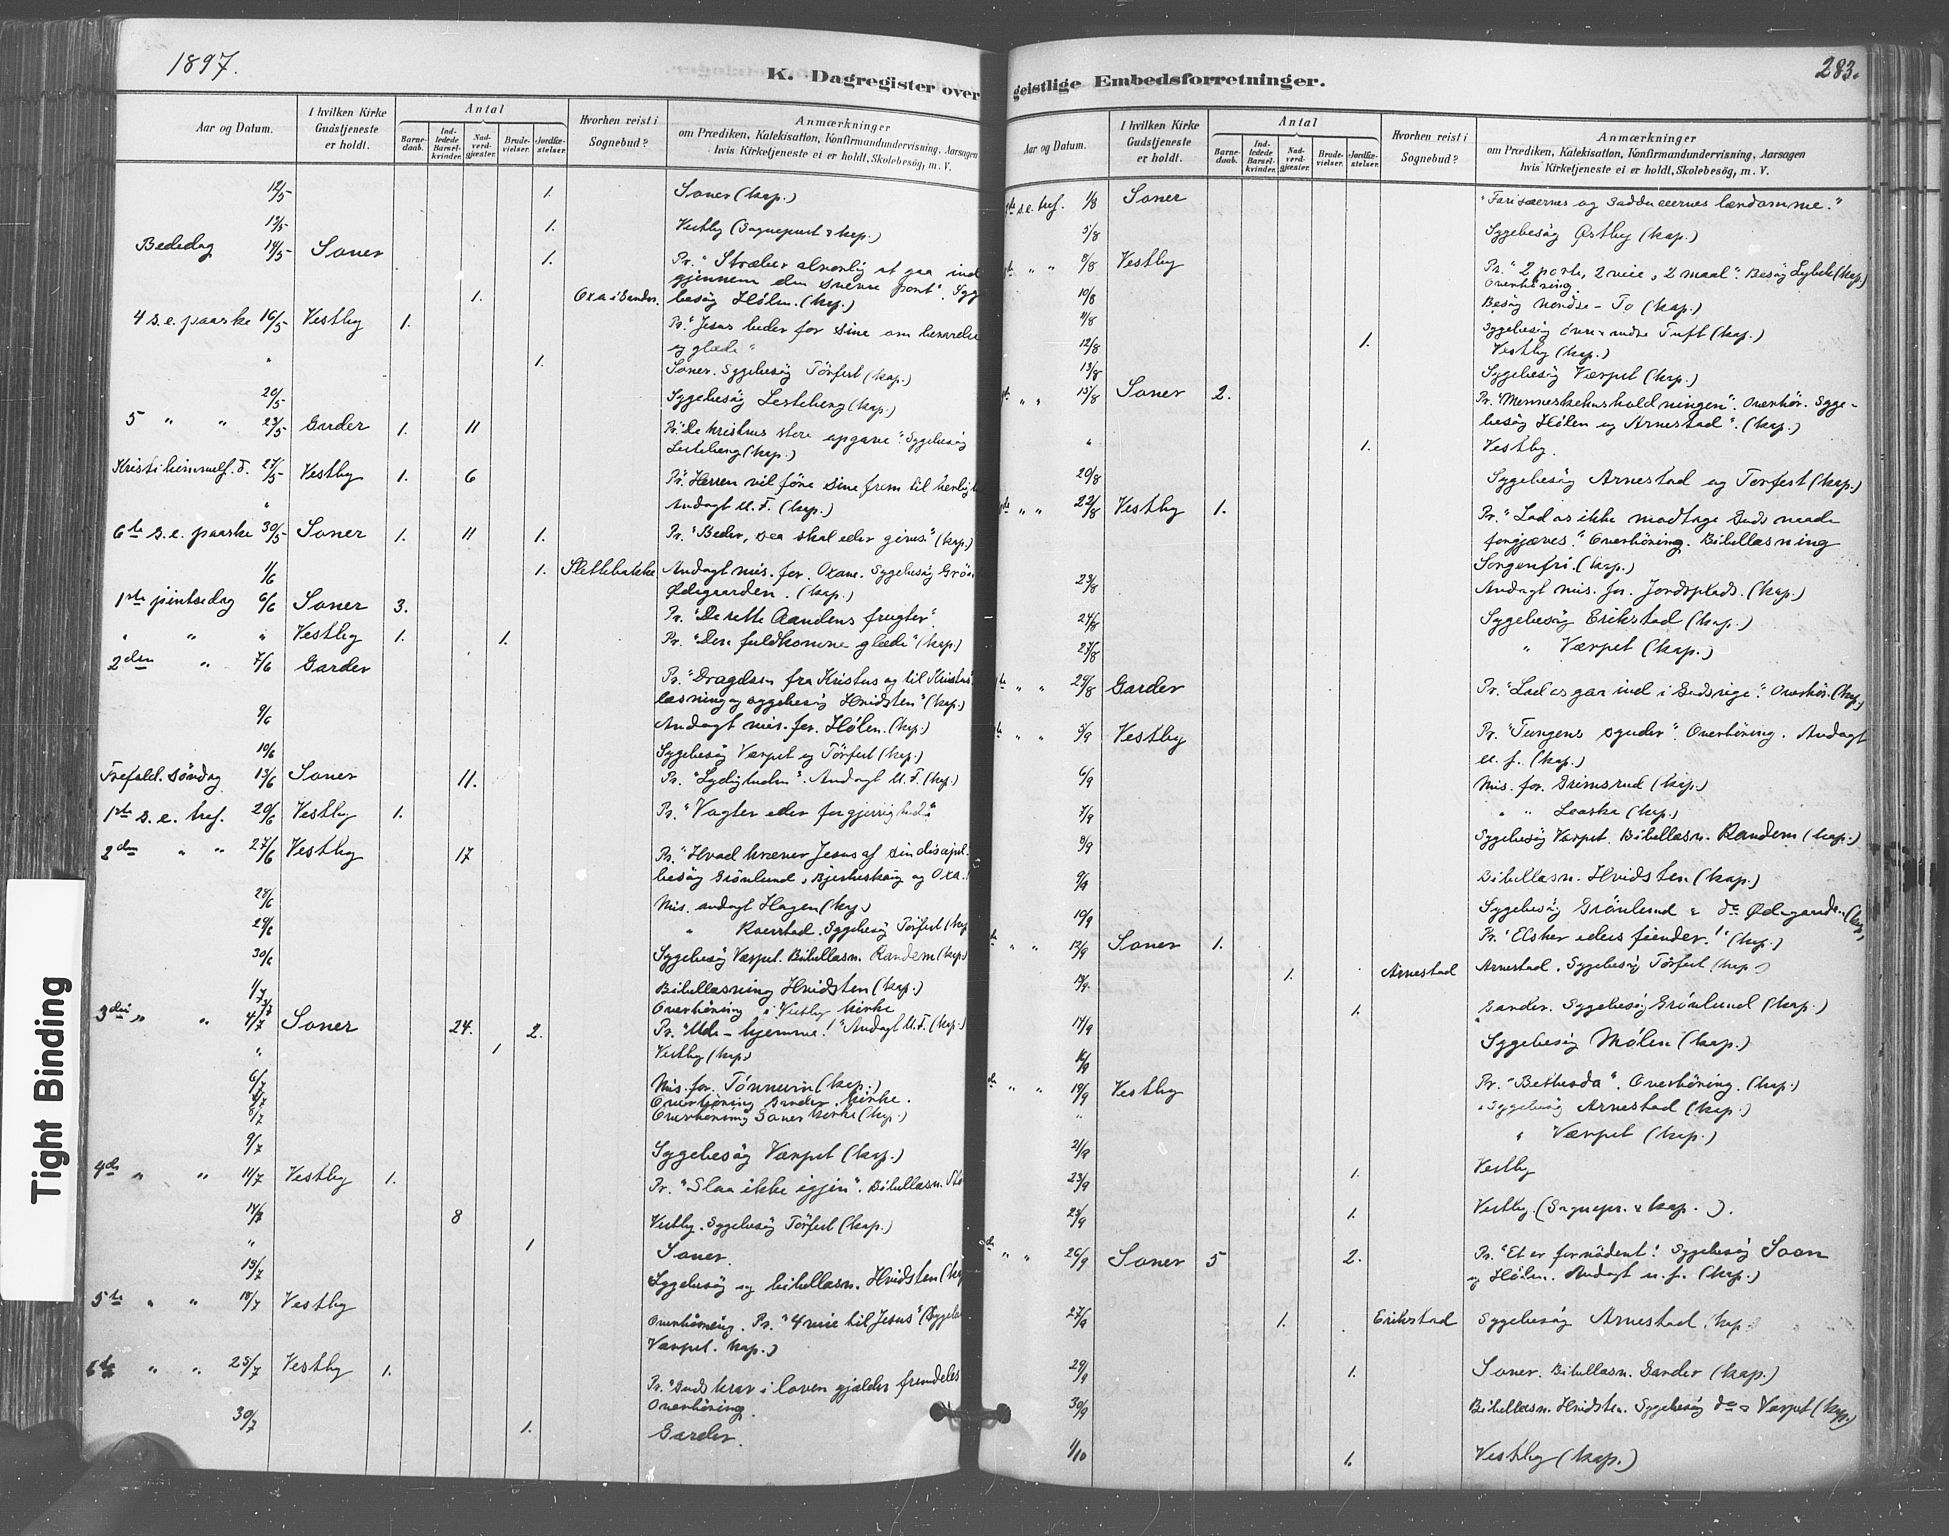 1897.
K. Dagregister over
Aar og Datum.
I hvilken Kirke Gudstjeneste er holdt.
Antal
Barnedaab.
Indledede Barselkvinder.
Nadverdgjester.
Brudevielser.
Jordfæstelser.
Hvorhen reist i Sognebud?
Anmærkninger
om Prædiken, Katekisation, Konfirmandundervisning, Aarsagen
hvis Kirketjeneste ei er holdt, Skolebesøg, m. V.
12/5 1. Soner (kap.)
12/5 1. Vestby (Sognepræst & kap.)
Bededag 14/5 Soner 1. Pr. "Stræber alvorlig at gaa ind
gjennem den snevre port". Syge
1. Oxa i Sander. besøg Hølen. (kap.)
4 s.e. paaske 16/5 Vestby 1. Pr. "Jesus beder for sine om bevarelse
og glæde"
" 1. Soner. Sygebesøg Törfest (kap.)
20/5 Sygebesøg Lesteberg (kap.)
5 " " 23/5 Garder 1. 11 Pr. "De kristnes store opgave". Sygebesøg
Lesteberg (kap.)
Kristi himmelf. d. 27/5 Vestby 1. 6 Pr. "Herren vil føre sine frem til herlig
" Andagt U.F. (kap.)
6te s.e. paaske 30/5 Soner 1. 11 1. Pr. "Beder, saa skal eder gives." (kap.)
1/6 1. Slettebakke Andagt mis. for. Oxane. Sygebesøg
Ødegaarden. (kap.)
1ste pintsedag 6/6 Soner 3. Pr. "De rette Aandens frugter".
" " " Vestby 1. 1. Pr. "Den fuldkomne glæde" (kap)
2den " 7/6 Garder Pr. "Dragelsen fra Kristus og til Kristus"
læsning og sygebesøg Hvidsten" (kap.)
9/6 Andagt mis. for. Hølen. (kap.)
10/6 Sygebesøg Værpet og Törfest (kap.)
Trefold. Søndag 13/6 Soner 11. Pr. "Lydigheden". Andagt U.F. (kap.)
1ste s.e. tref. 20/6 Vestby 1. Pr. "Vogter eder for gjerrighed"
2den " " 27/6 Vestby 17 Pr. "Hvad kræver Jesus af sin discipel
besøg Grönlund, Bjerkeskaug og Oxa.
28/6 Mis. andagt Hagen (kap.)
29/6 " Ravnstad. Sygebesøg Törfest (kap
30/6 Sygebesøg Værpet. Bibellæsn. Randem (kap.)
1/7 Bibellæsning Hvidsten (kap.)
3/7 Overhöring i Vestby kirke
3die " " 4/7 Soner 24. 2. Pr. "Ude - hjemme!" Andagt U.F. (kap.)
" 1 Vestby (kap.)
6/7 Mis. for. Tönnum (kap.)
Overhöring kirke.
8/7 Overhöring Soner kirke (kap.)
9/7 Sygebesøg Værpet (kap.)
4de " " 11/7 Vestby 1. Pr. "Slaa ikke igjen". Bibellæsn.
14/7 8 Vestby. Sygebesøg Törfest (kap.)
" 1 Soner.
15/7 Sygebesøg og bibellæsn. Hvidsten (kap
5te " " 18/7 Vestby Overhöring. Pr. "4 veie til Jesus" (Sygebe
Værpet. kap.)
6te " " 25/7 Vestby 1. Pr. "Guds krav i loven gjælder fremdeles
Overhöring.
30/7 1. Garder.
geistlige Embedsforretninger.
283.
Aar og Datum.
I hvilken Kirke Gudstjeneste er holdt.
Antal
Barnedaab.
Indledede Barselkvinder.
Nadverdgjester.
Brudevielser.
Jordfæstelser.
Hvorhen reist i Sognebud?
Anmærkninger
om Prædiken, Katekisation, Konfirmandundervisning, Aarsagen
hvis Kirketjeneste ei er holdt, Skolebesøg, m. V.
s.e. tref. 1/8 Soner "Farisæernes og Sadducæernes lærdomme."
5/8 Sygebesøg Østby (kap.)
" " 8/8 Vestby Pr. "2 porte, 2 veie, 2 maal". Besøg Lybek (kap.)
Overhöring.
10/8 Besøg nordre - To (kap.)
11/8 Sygebesøg övre & nedre Tuft (kap.)
12/8 1. Vestby (kap.)
13/8 Sygebesøg Værpet (kap.)
" " 15/8 Soner 2. Pr. "Menneskehusholdningen". Overhör. Syge-
besøg Hølen og Arnestad". (kap.)
" 1. Vestby.
20/8 Sygebesøg Arnestad og Torfest (kap.)
" " 22/8 Vestby 1. Pr. "Lad os ikke modtage Guds naade
forgjæves." Overhöring. Bibellæsning
Sorgenfri. (kap.)
23/8 Andagt mis. for. Jordsplads. (kap.)
24/8 Sygebesøg Erikstad (kap.)
27/8 " Værpet (kap.)
" " 29/8 Garder Pr. "Lad os gaa ind i Guds rige". Overhör. (kap.)
" " 5/9 Vestby Pr. "Tungens synder". Overhöring. Andagt
u. f. (kap.)
6/9 Mis. for. Grimsrud (kap.)
7/9 " " Laaska (kap.)
8/9 Sygebesøg Værpet. Bibellæsn. Randem (kap.)
9/9 Bibellæsn. Hvidsten (kap.)
10/9 Sygebesøg Grönlund & do Ødegaarden (kap)
" " 12/9 Soner 1. Pr. "Elsker eders fiender!" (kap.)
13/9. 1. Arnestad Arnestad. Sygebesøg Törfest (kap.)
14/9 1. Garder. Sygebesøg Grönlund (kap.)
16/9 Sygebesøg Mølen (kap.)
" " 19/9 Vestby Pr. "Bethesda". Overhöring. (kap.)
" Sygebesøg Arnestad (kap.)
21/9 " Værpet (kap.)
23/9 1. Vestby
25/9 1. Vestby. (Sognepr. & kap.).
" " 26/9 Soner 5 2. Pr. "Et er fornödent! Sygebesøg Soon
og Hølen. Andagt u.f. (kap.)
27/9 1. Erikstad Sygebesøg Arnestad. kap.
29/9 1. Soner. Bibellæsn. Sander (kap.)
30/9 Bibellæsn. Hvidsten. Sygebesøg do & Værpet (kap.)
1/10 1. Vestby (kap.)
Tight Binding